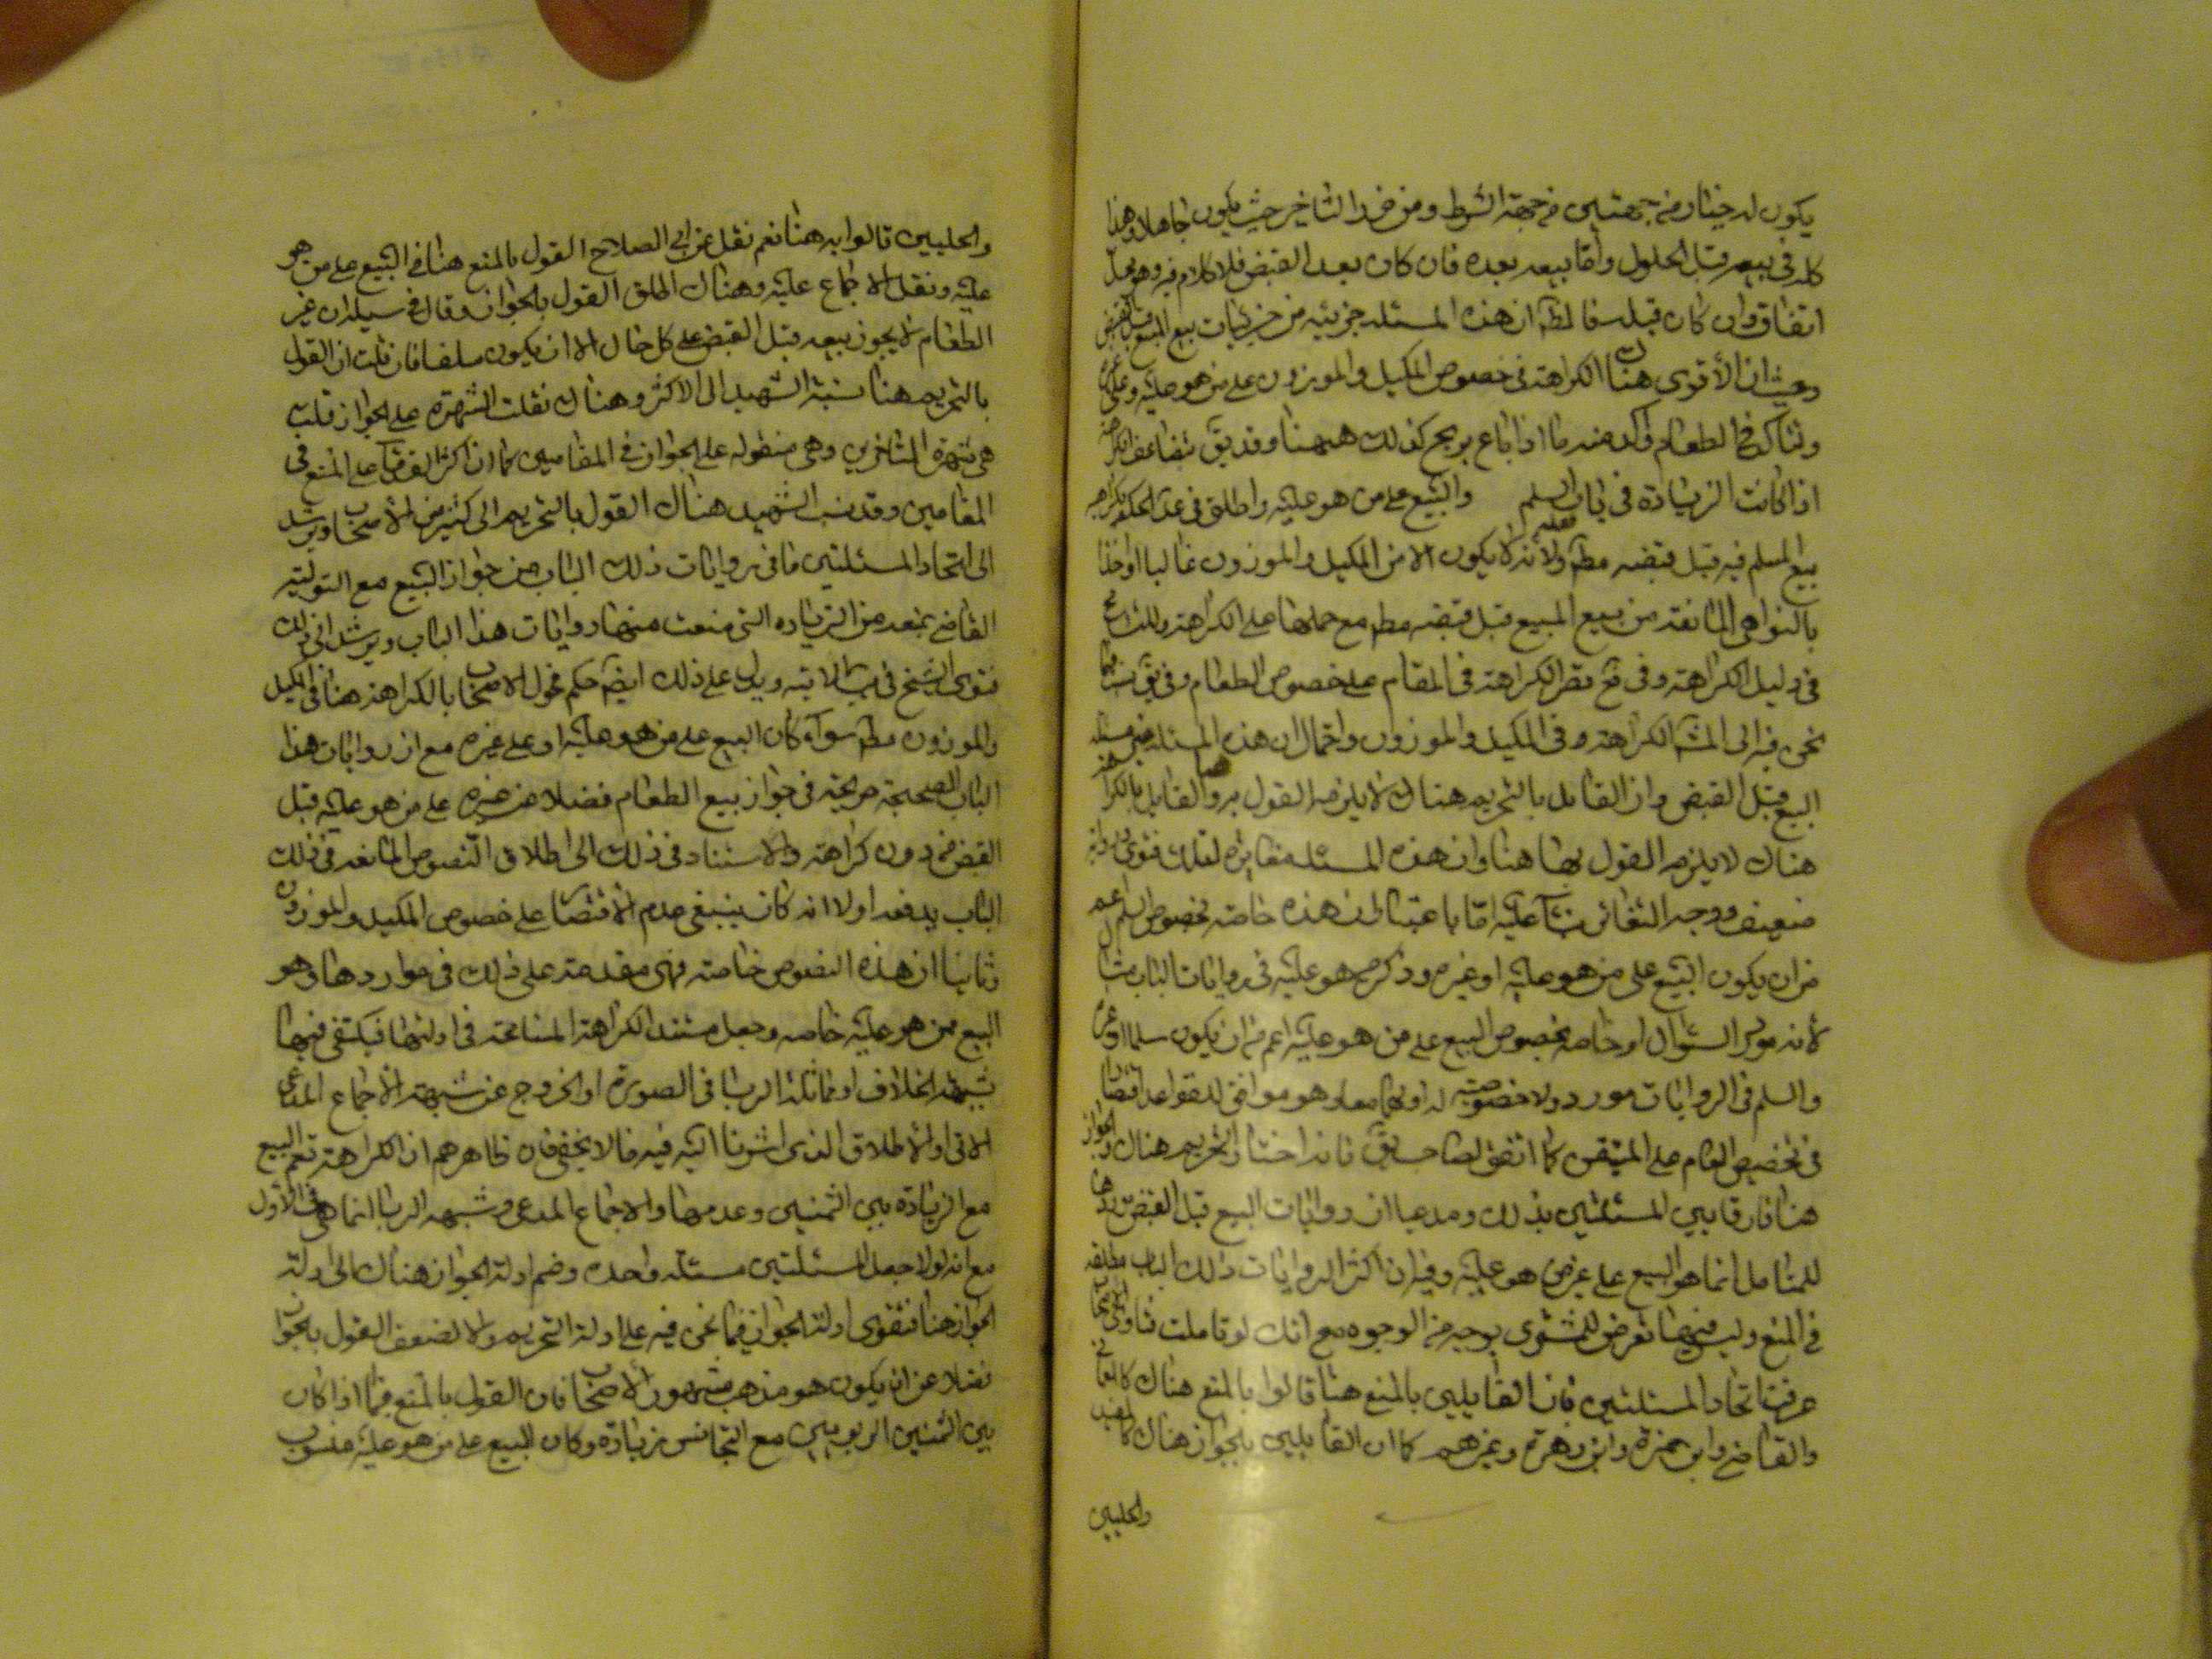 يكون له خيار من جهتين من جهة الشرط ومن ضرر التاخير حيث يكون جاهلا وهذا
كله في بيعه قبل الحلول وأما بيعه بعده فان كان بعد القبض فلا كلام فيه وهو محل
اتفاق وان كان قبله فالظ ان هذه المسئلة جزئية من جزئيات بيع المبيع قبل القبض
وحيث ان الأقوى هناك الكراهة في خصوص المكيل والموزون على من هو عليه وعلى غيره
وتتاكد في الطعام واكد منه ما اذا باع بربح كذلك ههنا وقد يق بتضاعف الكراهة
اذا كانت الزيادة في باب السلم والبيع على من هو عليه واطلق في عد الحكم بكراهة
بيع المسلم فيه قبل قبضه مط ولأنه لا يكون الا من المكيل والموزون غالبا او اخذا
بالنواهي المانعة من بيع المبيع قبل قبضه مط مع حملها على الكراهة وللتسامح
في دليل الكراهة وفي قصر الكراهة في المقام على خصوص الطعام وفي
نحن فيه الى الكراهة وفي المكيل والموزون واحتمال ان هذه المسئلة غير مسئلة
البيع قبل القبض وان القائل بالتحريم هناك لا يلزمه القول به هنا والقائل بالكراهة
هناك لا يلزمه القول بها هنا وان هذه المسئلة مغايرة لتلك فتوى ورواية
ضعيف ووجه التغاير بناء عليه اما باعتبار ان هذه خاصة بخصوص السلم اعم
من ان يكون البيع على من هو عليه او غيره وذكر من هو عليه في روايات الباب
لأنه مورد السئوال او خاصة بخصوص البيع على من هو عليه اعم من ان يكون سلما او غيره
والسلم في الروايات مورد ولا خصوصية له او بهما معا وهو موافق للقواعد اقتصارا
في تخصيص العام على المتيقن كما اتفق لصاحب ئق فانه اختار التحريم هناك والجواز
هنا فارقا بين المسئلتين بذلك ومدعيا ان روايات البيع قبل القبض
للمتامل انما هو البيع على غير من هو عليه وفيه ان اكثر الروايات ذلك الباب مطلقة
في المنع وليس فيها تعرض للمشتري بوجه من الوجوه مع انك لو تاملت فتاوى الاصحاب
عرفت اتحاد المسئلتين فان القايلين بالمنع هنا قالوا بالمنع هناك كالعماني
والقاضي وابن حمزة وابن زهرة وغيرهم كما ان القايلين بالجواز هناك كالمفيد
والحلبيين
والحلبيين قالوا به هنا نعم نقل عن ابي الصلاح القول بالمنع هنا في البيع على من هو
عليه ونقل الاجماع عليه وهناك اطلق القول بالجواز وقال ان غير
الطعام لا يجوز بيعه قبل القبض على كل حال الا ان يكون سلفا فان قلت ان القول
بالتحريم هنا نسبة الشهيد الى الاكثر وهناك نقلت الشهرة على الجواز قلت
هي شهرة المتاخرين وهي منقولة على الجواز في المقامين كما ان اكثر القدماء على المنع في
المقامين وقد نسب الشهيد هناك القول بالتحريم الى كثير من الاصحاب ويرشد
الى اتحاد المسئلتين ما في روايات ذلك الباب من جواز البيع مع التولية
القاضي بمنعه من الزيادة التي منعت منها روايات هذا الباب ويرشد الى ذلك
فتوى الشيخ في الاتية ويدل على ذلك ايضا حكم فحول الاصحاب بالكراهة هنا في المكيل
والموزون مط سواء كان البيع على من هو عليه او على غيره مع ان روايات هذا
الباب الصحيحة صريحة في جواز بيع الطعام فضلا عن غيره على من هو عليه قبل
القبض من دون كراهة والاستناد في ذلك الى اطلاق النصوص المانعة في ذلك
الباب يدفعه اولا انه كان ينبغي عدم الاقتصار على خصوص المكيل والموزون
وثانيا ان هذه النصوص خاصة فهي مقدمة على ذلك في مواردها وهو
البيع من هو عليه خاصة وجعل مستند الكراهة المسامحة في ادلتها فيكتفى فيها
بشبهة الخلاف او مماثلة الربا في الصورة او الخروج عن شبهة الاجماع المدعى
الاتي او الاطلاق الذي اشرنا اليه فيه ما لا يخفى فان ظاهرهم ان الكراهة تعم البيع
مع الزيادة بين الثمنين وعدمها والاجماع المدعى وشبهه الربا انما هي في الاول
مع انه لولا جعل المسئلتين مسئلة واحدة وضم ادلة الجواز هناك الى ادلة
الجواز هنا فتقوى ادلة الجواز فيما نحن فيه على ادلة التحريم والا لضعف القول بالجواز
فضلا عن ان يكون هو مذهب مشهور الاصحاب فان القول بالمنع فيما اذا كان
بين الثمنين الربويين مع التجانس زيادة وكان البيع على من هو عليه منسوب